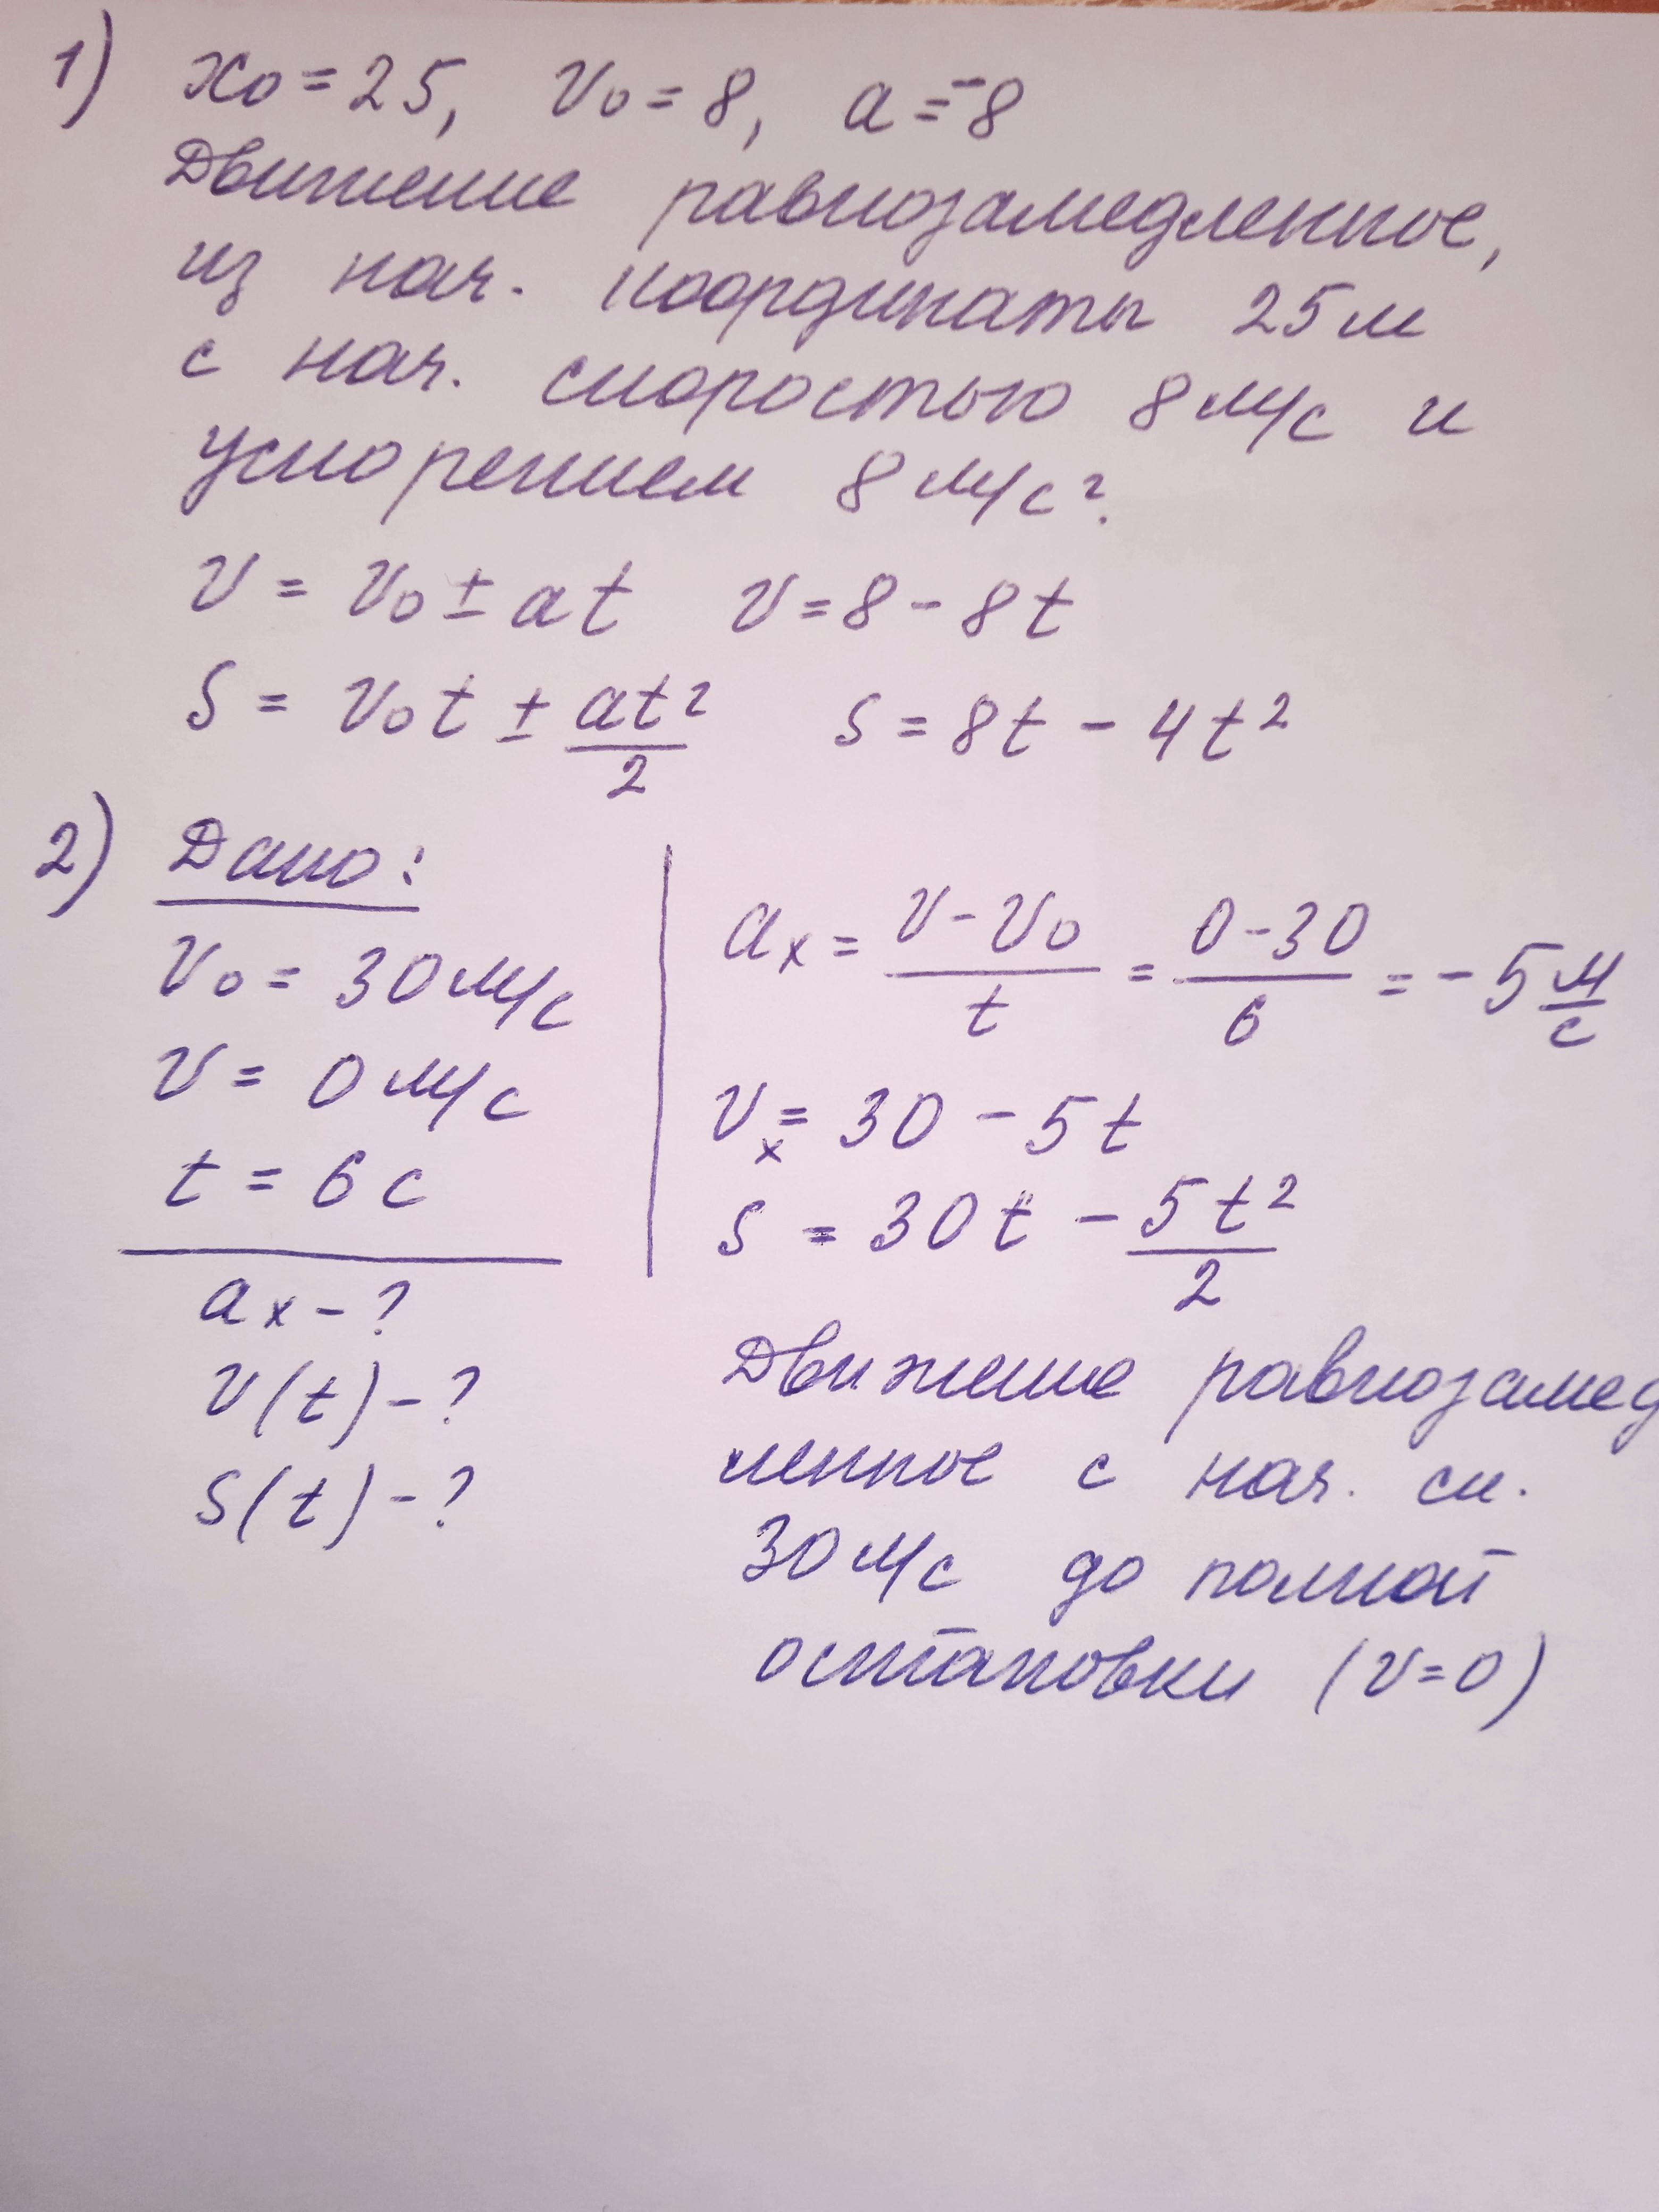 1) x₀ = 25, v₀ = 8, a = -8
Движение равнозамедленное,
из нач. координаты 25 м
с нач. скоростью 8 м/с и
ускорением 8 м/с².
v = v₀ ± at v = 8 - 8t
s = v₀t ± at²/2 s = 8t - 4t²
2) Дано:
v₀ = 30 м/с
v = 0 м/с
t = 6 с
aₓ - ?
v(t) - ?
s(t) - ?
aₓ = (v - v₀)/t = (0 - 30)/6 = -5 м/с
vₓ = 30 - 5t
s = 30t - 5t²/2
Движение равнозамед
ленное с нач. ск.
30 м/с до полной
остановки (v = 0)